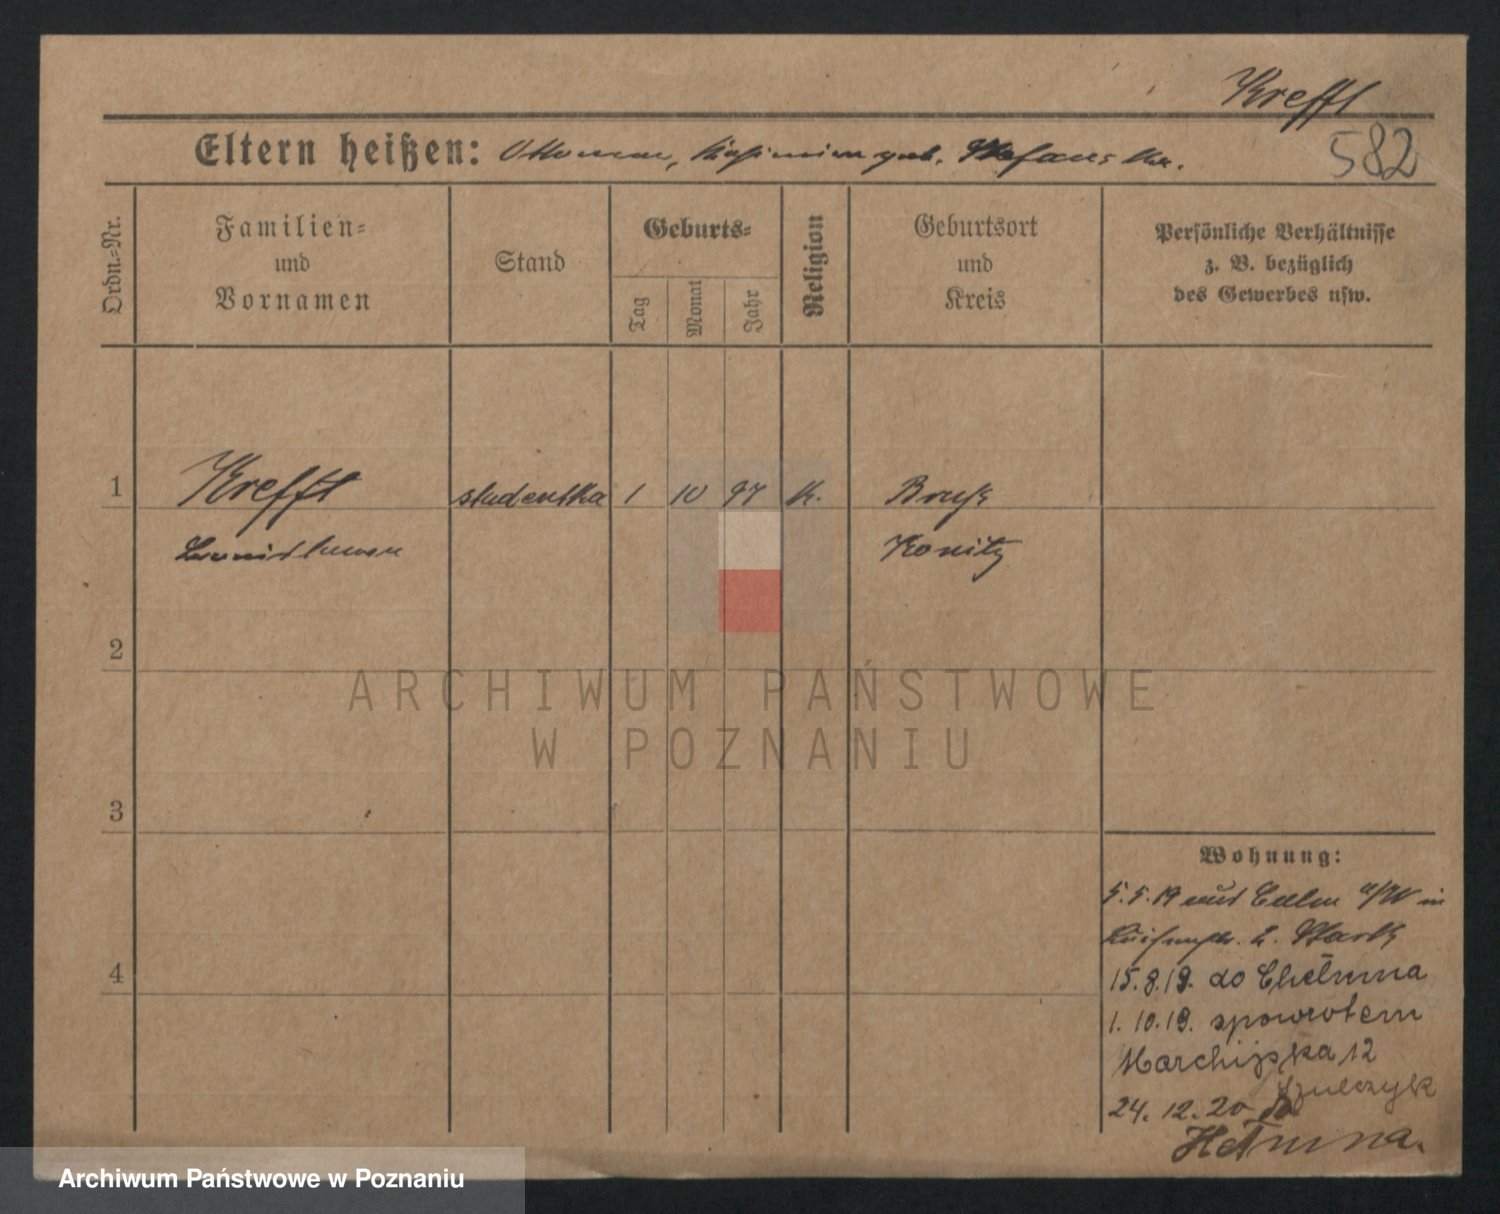 Krefft
Eltern heißen: Ottomar, geb.
582
Ordn.-Nr.
Familien-
und
Vornamen
Stand
Geburts-
Tag
Monat
Jahr
Religion
Geburtsort
und
Kreis
Persönliche Verhältnisse
z. B. bezüglich
des Gewerbes usw.
1
Krefft studentka 1 10 97 k. Bruß
Konitz
2
ARCHIWUM PAŃSTWOWE
W POZNANIU
3
Wohnung:
5.5.19 aus Culm a/W in
2.
4
15.8.19. do Chełmna
1.10.19. spowrotem
12
Szulczyk
24.12.20 do
Hełmna.
Archiwum Państwowe w Poznaniu